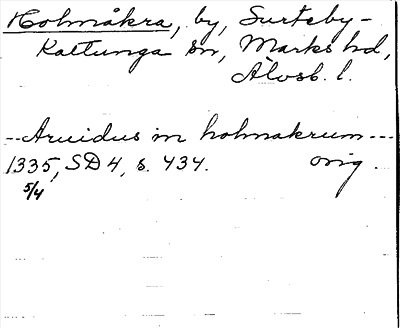 Holmåkra, by, Surteby-
Kattunga sn, Marks hd,
Älvsb. l.
-- Aruidus in holmakrum ---
1335, SD 4, s. 434. orig.
5/4